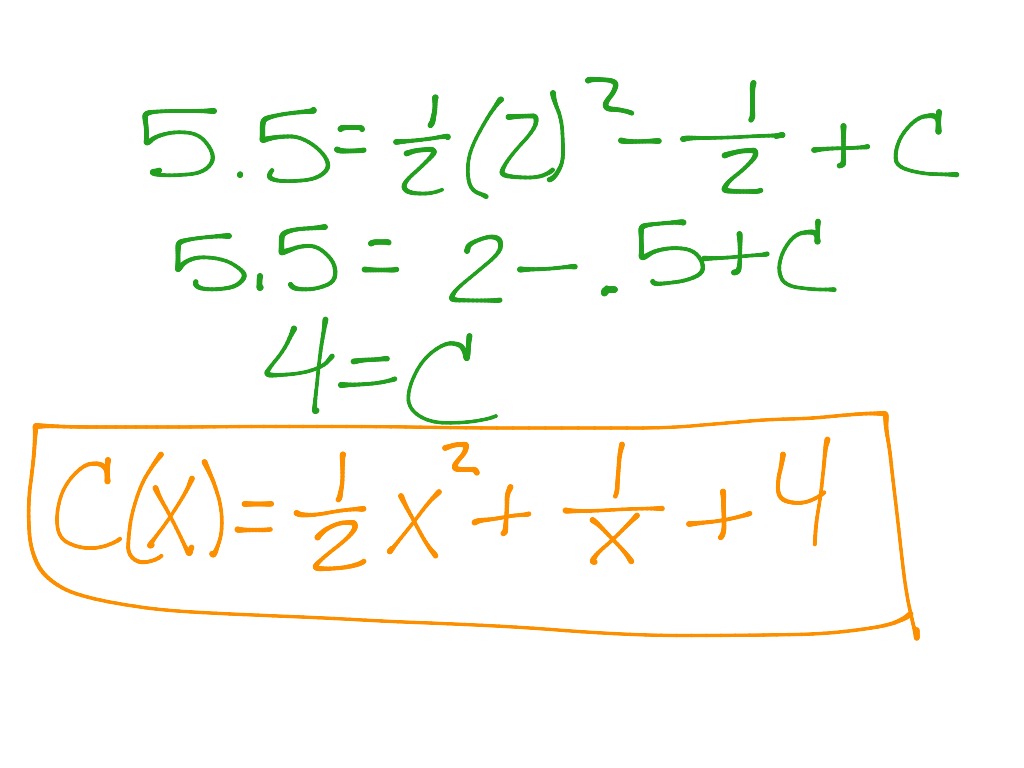 5.5 = 1/2 (2)² − 1/2 + C
5.5 = 2 − .5 + C
4 = C
C(x) = 1/2 x² + 1/x + 4